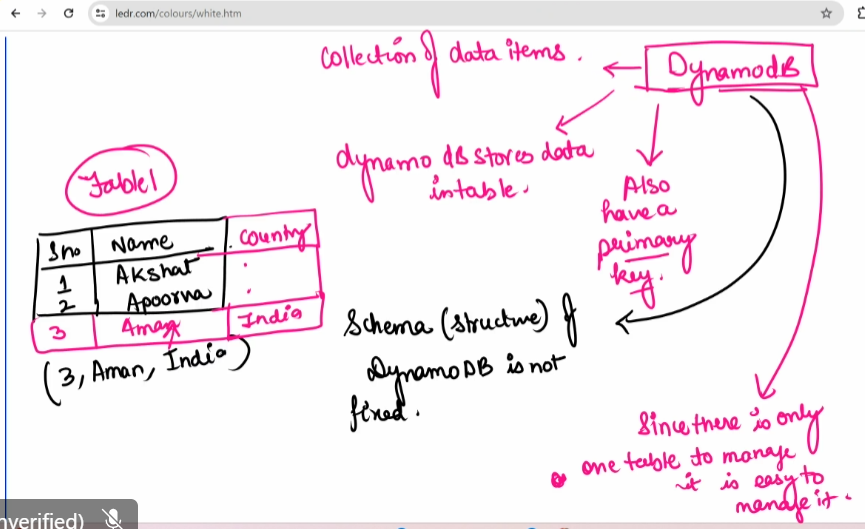 ledr.com/colours/white.htm
Collection of data items.
DynamodB
dynamo dB stores data
in table.
Also
have a
primary
key.
Table1
Sno Name Country
1 Akshat .
2 Apoorva .
3 Aman India
(3, Aman, India)
Schema (structure) of
DynamoDB is not
fixed.
Since there is only
one table to manage
it is easy to
manage it.
nverified)